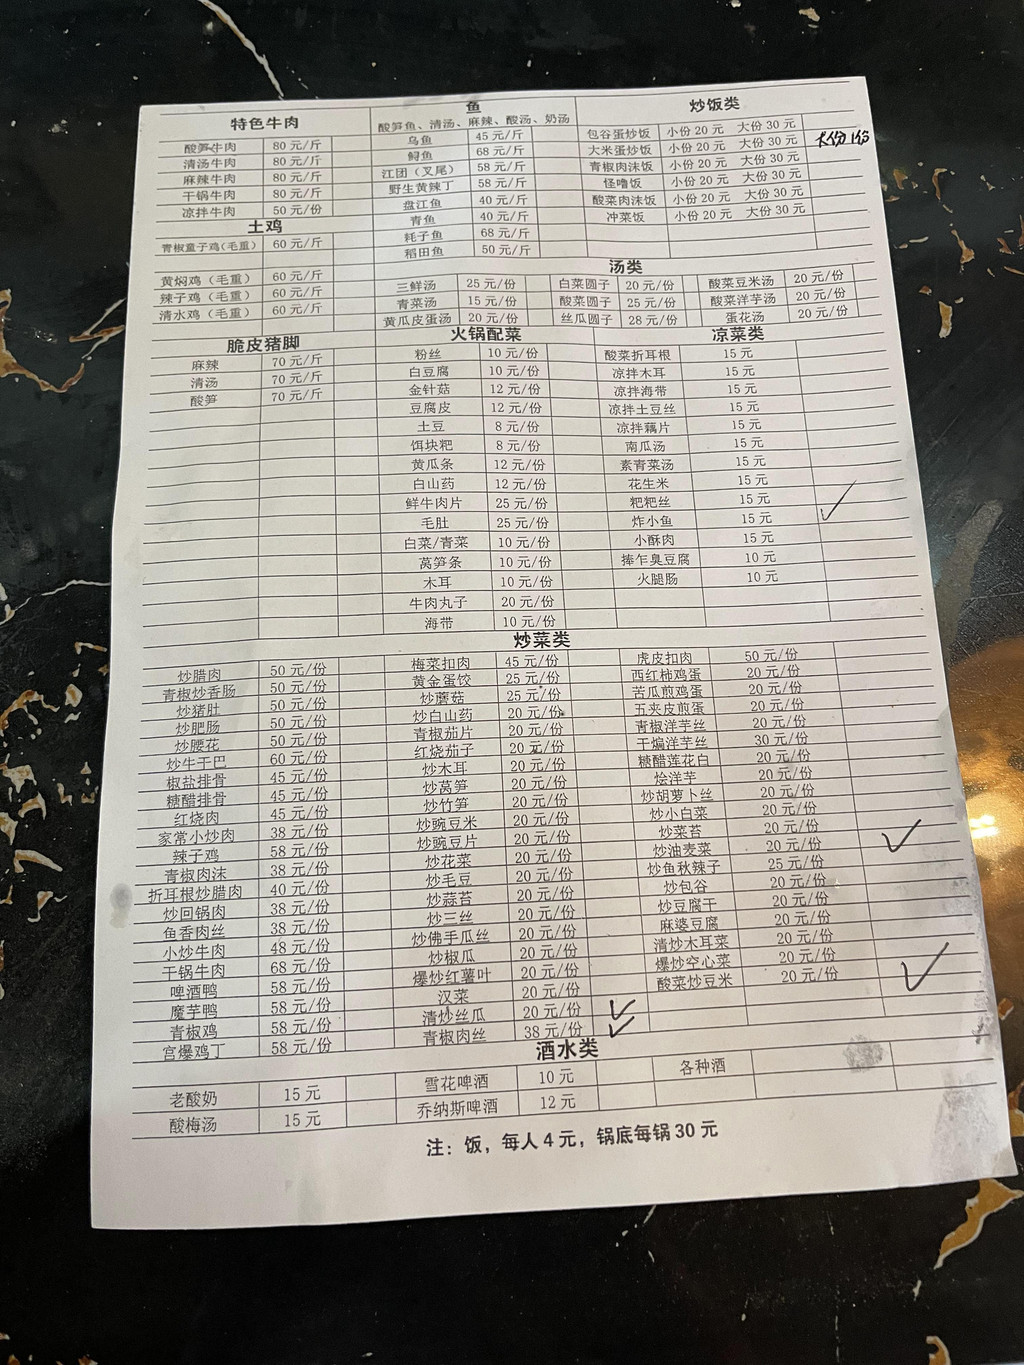 特色牛肉
酸笋牛肉 80 元/斤
清汤牛肉 80 元/斤
麻辣牛肉 80 元/斤
干锅牛肉 80 元/斤
凉拌牛肉 50 元/份
土鸡
青椒童子鸡(毛重) 60 元/斤
黄焖鸡（毛重） 60 元/斤
辣子鸡（毛重） 60 元/斤
清水鸡（毛重） 60 元/斤
鱼
酸笋鱼、清汤、麻辣、酸汤、奶汤
乌鱼 45 元/斤
鲟鱼 68 元/斤
江团（叉尾） 58 元/斤
野生黄辣丁 58 元/斤
盘江鱼 40 元/斤
青鱼 40 元/斤
耗子鱼 68 元/斤
稻田鱼 50 元/斤
炒饭类
包谷蛋炒饭 小份 20 元 大份 30 元 大份1份
大米蛋炒饭 小份 20 元 大份 30 元
青椒肉沫饭 小份 20 元 大份 30 元
怪噜饭 小份 20 元 大份 30 元
酸菜肉沫饭 小份 20 元 大份 30 元
冲菜饭 小份 20 元 大份 30 元
汤类
三鲜汤 25 元/份 白菜圆子 20 元/份 酸菜豆米汤 20 元/份
青菜汤 15 元/份 酸菜圆子 25 元/份 酸菜洋芋汤 20 元/份
黄瓜皮蛋汤 20 元/份 丝瓜圆子 28 元/份 蛋花汤 20 元/份
脆皮猪脚
麻辣 70 元/斤
清汤 70 元/斤
酸笋 70 元/斤
火锅配菜
粉丝 10 元/份
白豆腐 10 元/份
金针菇 12 元/份
豆腐皮 12 元/份
土豆 8 元/份
饵块粑 8 元/份
黄瓜条 12 元/份
白山药 12 元/份
鲜牛肉片 25 元/份
毛肚 25 元/份
白菜/青菜 10 元/份
莴笋条 10 元/份
木耳 10 元/份
牛肉丸子 20 元/份
海带 10 元/份
凉菜类
酸菜折耳根 15 元
凉拌木耳 15 元
凉拌海带 15 元
凉拌土豆丝 15 元
凉拌藕片 15 元
南瓜汤 15 元
素青菜汤 15 元
花生米 15 元
粑粑丝 15 元
炸小鱼 15 元
小酥肉 15 元
捧乍臭豆腐 10 元
火腿肠 10 元
炒菜类
炒腊肉 50 元/份
青椒炒香肠 50 元/份
炒猪肚 50 元/份
炒肥肠 50 元/份
炒腰花 50 元/份
炒牛干巴 60 元/份
椒盐排骨 45 元/份
糖醋排骨 45 元/份
红烧肉 45 元/份
家常小炒肉 38 元/份
辣子鸡 58 元/份
青椒肉沫 38 元/份
折耳根炒腊肉 40 元/份
炒回锅肉 38 元/份
鱼香肉丝 38 元/份
小炒牛肉 48 元/份
干锅牛肉 68 元/份
啤酒鸭 58 元/份
魔芋鸭 58 元/份
青椒鸡 58 元/份
宫爆鸡丁 58 元/份
梅菜扣肉 45 元/份
黄金蛋饺 25 元/份
炒蘑菇 25 元/份
炒白山药 20 元/份
青椒茄片 20 元/份
红烧茄子 20 元/份
炒木耳 20 元/份
炒莴笋 20 元/份
炒竹笋 20 元/份
炒豌豆米 20 元/份
炒豌豆片 20 元/份
炒花菜 20 元/份
炒毛豆 20 元/份
炒蒜苔 20 元/份
炒三丝 20 元/份
炒佛手瓜丝 20 元/份
炒椒瓜 20 元/份
爆炒红薯叶 20 元/份
汉菜 20 元/份
清炒丝瓜 20 元/份
青椒肉丝 38 元/份
虎皮扣肉 50 元/份
西红柿鸡蛋 20 元/份
苦瓜煎鸡蛋 20 元/份
五夹皮煎蛋 20 元/份
青椒洋芋丝 20 元/份
干煸洋芋丝 30 元/份
糖醋莲花白 20 元/份
烩洋芋 20 元/份
炒胡萝卜丝 20 元/份
炒小白菜 20 元/份
炒菜苔 20 元/份
炒油麦菜 20 元/份
炒鱼秋辣子 25 元/份
炒包谷 20 元/份
炒豆腐干 20 元/份
麻婆豆腐 20 元/份
清炒木耳菜 20 元/份
爆炒空心菜 20 元/份
酸菜炒豆米 20 元/份
酒水类
老酸奶 15 元 雪花啤酒 10 元 各种酒
酸梅汤 15 元 乔纳斯啤酒 12 元
注：饭，每人 4 元，锅底每锅 30 元